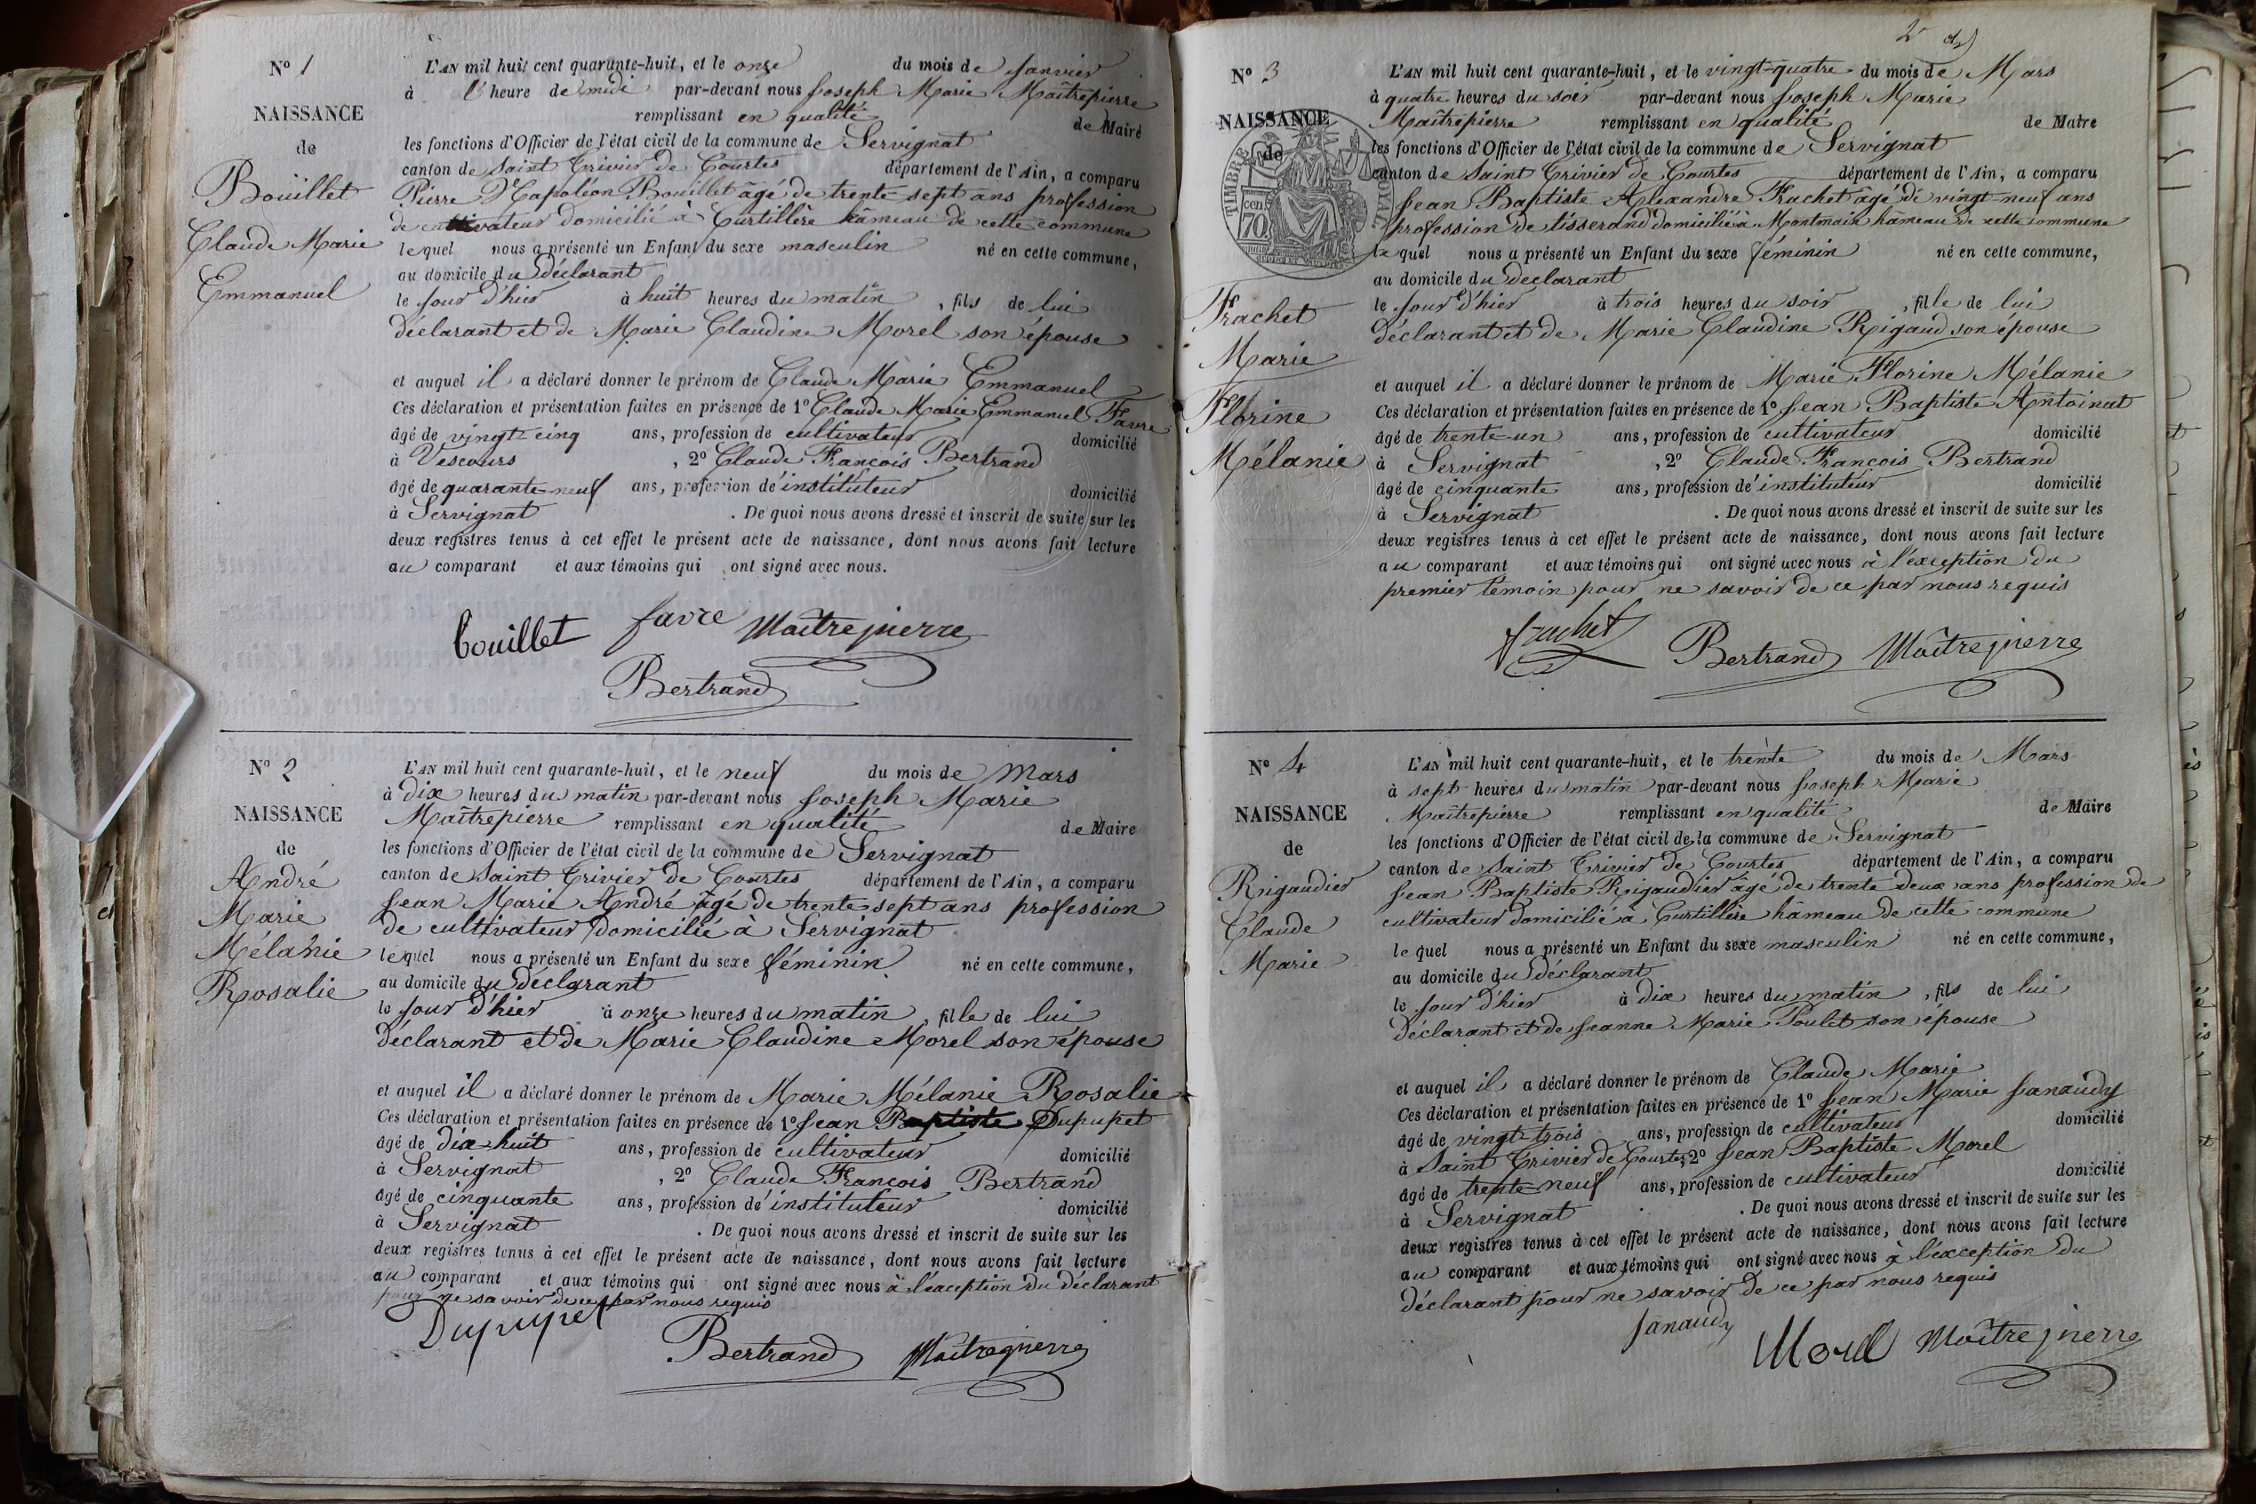 N° 1
NAISSANCE
de
Bouillet
Claude Marie
Emmanuel
L'AN mil huit cent quarante-huit, et le onze du mois de Janvier
à l'heure de midi par-devant nous Joseph Marie Maîtrepierre
remplissant en qualité de Maire
les fonctions d'Officier de l'état civil de la commune de Servignat
canton de Saint Trivier de Courtes département de l'Ain, a comparu
Pierre Napoléon Bouillet âgé de trente sept ans profession
de cultivateur domicilié à Curtillère hâmeau de cette commune
lequel nous a présenté un Enfant du sexe masculin né en cette commune,
au domicile du déclarant
le jour d'hier à huit heures du matin, fils de lui
déclarant et de Marie Claudine Morel son épouse
et auquel il a déclaré donner le prénom de Claude Marie Emmanuel
Ces déclaration et présentation faites en présence de 1° Claude Marie Emmanuel Favre
âgé de vingt-cinq ans, profession de cultivateur domicilié
à Vescours, 2° Claude François Bertrand
âgé de quarante-neuf ans, profession d'instituteur domicilié
à Servignat. De quoi nous avons dressé et inscrit de suite sur les
deux registres tenus à cet effet le présent acte de naissance, dont nous avons fait lecture
au comparant et aux témoins qui ont signé avec nous.
bouillet favre Maîtrepierre
Bertrand
N° 2
NAISSANCE
de
André
Marie
Mélanie
Rosalie
L'AN mil huit cent quarante-huit, et le neuf du mois de Mars
à dix heures du matin par-devant nous Joseph Marie
Maîtrepierre remplissant en qualité de Maire
les fonctions d'Officier de l'état civil de la commune de Servignat
canton de Saint Trivier de Courtes département de l'Ain, a comparu
Jean Marie André âgé de trente sept ans profession
de cultivateur domicilié à Servignat
lequel nous a présenté un Enfant du sexe féminin né en cette commune,
au domicile du déclarant
le jour d'hier à onze heures du matin, fille de lui
déclarant et de Marie Claudine Morel son épouse
et auquel il a déclaré donner le prénom de Marie Mélanie Rosalie
Ces déclaration et présentation faites en présence de 1° Jean Baptiste Dupupet
âgé de dix huit ans, profession de cultivateur domicilié
à Servignat, 2° Claude François Bertrand
âgé de cinquante ans, profession d'instituteur domicilié
à Servignat. De quoi nous avons dressé et inscrit de suite sur les
deux registres tenus à cet effet le présent acte de naissance, dont nous avons fait lecture
au comparant et aux témoins qui ont signé avec nous à l'exception du déclarant
pour ne savoir de ce par nous requis
Dupupet
Bertrand Maîtrepierre
2
N° 3
NAISSANCE
de
TIMBRE ROYAL
cen 70
Frachet
Marie
Florine
Mélanie
L'AN mil huit cent quarante-huit, et le vingt-quatre du mois de Mars
à quatre heures du soir par-devant nous Joseph Marie
Maîtrepierre remplissant en qualité de Maire
les fonctions d'Officier de l'état civil de la commune de Servignat
canton de Saint Trivier de Courtes département de l'Ain, a comparu
Jean Baptiste Alexandre Frachet âgé de vingt-neuf ans
profession de tisserand domicilié à Montmain hâmeau de cette commune
lequel nous a présenté un Enfant du sexe féminin né en cette commune,
au domicile du déclarant
le jour d'hier à trois heures du soir, fille de lui
déclarant et de Marie Claudine Rigaud son épouse
et auquel il a déclaré donner le prénom de Marie Florine Mélanie
Ces déclaration et présentation faites en présence de 1° Jean Baptiste Antoinat
âgé de trente-un ans, profession de cultivateur domicilié
à Servignat, 2° Claude François Bertrand
âgé de cinquante ans, profession d'instituteur domicilié
à Servignat. De quoi nous avons dressé et inscrit de suite sur les
deux registres tenus à cet effet le présent acte de naissance, dont nous avons fait lecture
au comparant et aux témoins qui ont signé avec nous à l'exception du
premier témoin pour ne savoir de ce par nous requis
frachet Bertrand Maîtrepierre
N° 4
NAISSANCE
de
Rigaudier
Claude
Marie
L'AN mil huit cent quarante-huit, et le trente du mois de Mars
à sept heures du matin par-devant nous Joseph Marie
Maîtrepierre remplissant en qualité de Maire
les fonctions d'Officier de l'état civil de la commune de Servignat
canton de Saint Trivier de Courtes département de l'Ain, a comparu
Jean Baptiste Rigaudier âgé de trente deux ans profession de
cultivateur domicilié à Curtillère hâmeau de cette commune
lequel nous a présenté un Enfant du sexe masculin né en cette commune,
au domicile du déclarant
le jour d'hier à dix heures du matin, fils de lui
déclarant et de Jeanne Marie Poulet son épouse
et auquel il a déclaré donner le prénom de Claude Marie
Ces déclaration et présentation faites en présence de 1° Jean Marie Janaudy
âgé de vingt-trois ans, profession de cultivateur domicilié
à Saint Trivier de Courtes, 2° Jean Baptiste Morel
âgé de trente neuf ans, profession de cultivateur domicilié
à Servignat. De quoi nous avons dressé et inscrit de suite sur les
deux registres tenus à cet effet le présent acte de naissance, dont nous avons fait lecture
au comparant et aux témoins qui ont signé avec nous à l'exception du
déclarant pour ne savoir de ce par nous requis
Janaudy
Morel Maîtrepierre